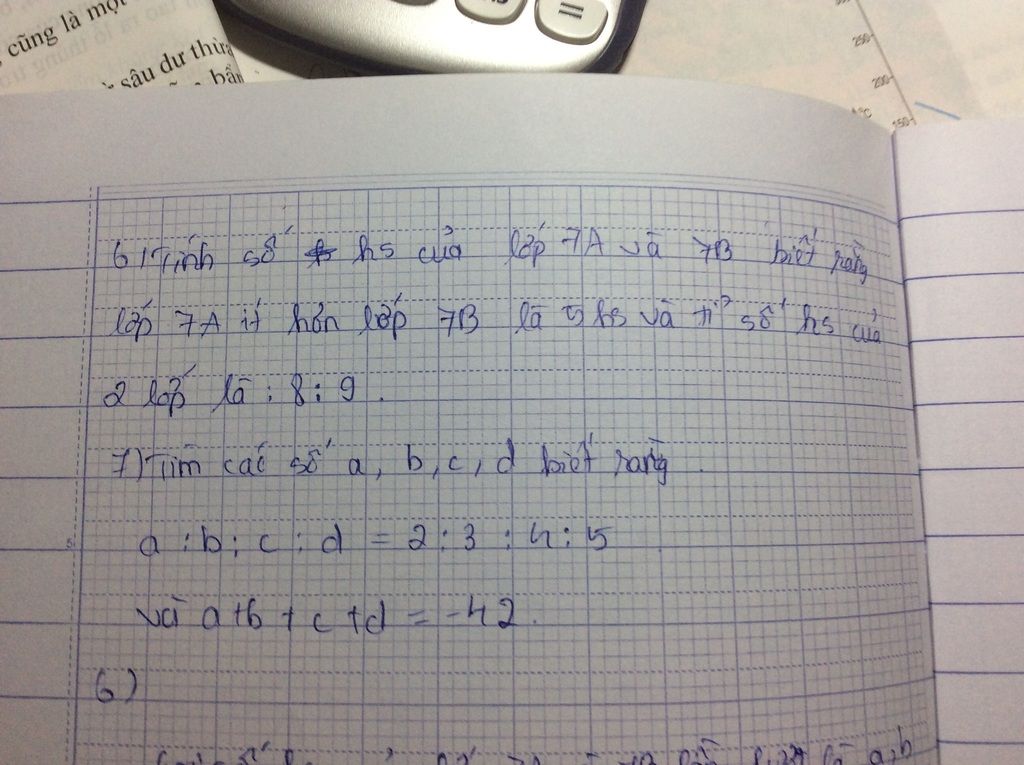 cũng là một
sâu dư thừa
=
250
200
150
6) Tính số hs của lớp 7A và 7B biết rằng
lớp 7A ít hơn lớp 7B là 5 hs và tỉ số hs của
2 lớp là : 8 : 9 .
7) Tìm các số a, b, c, d biết rằng .
a : b : c : d = 2 : 3 : 4 : 5
và a + b + c + d = -42 .
6)
a, b